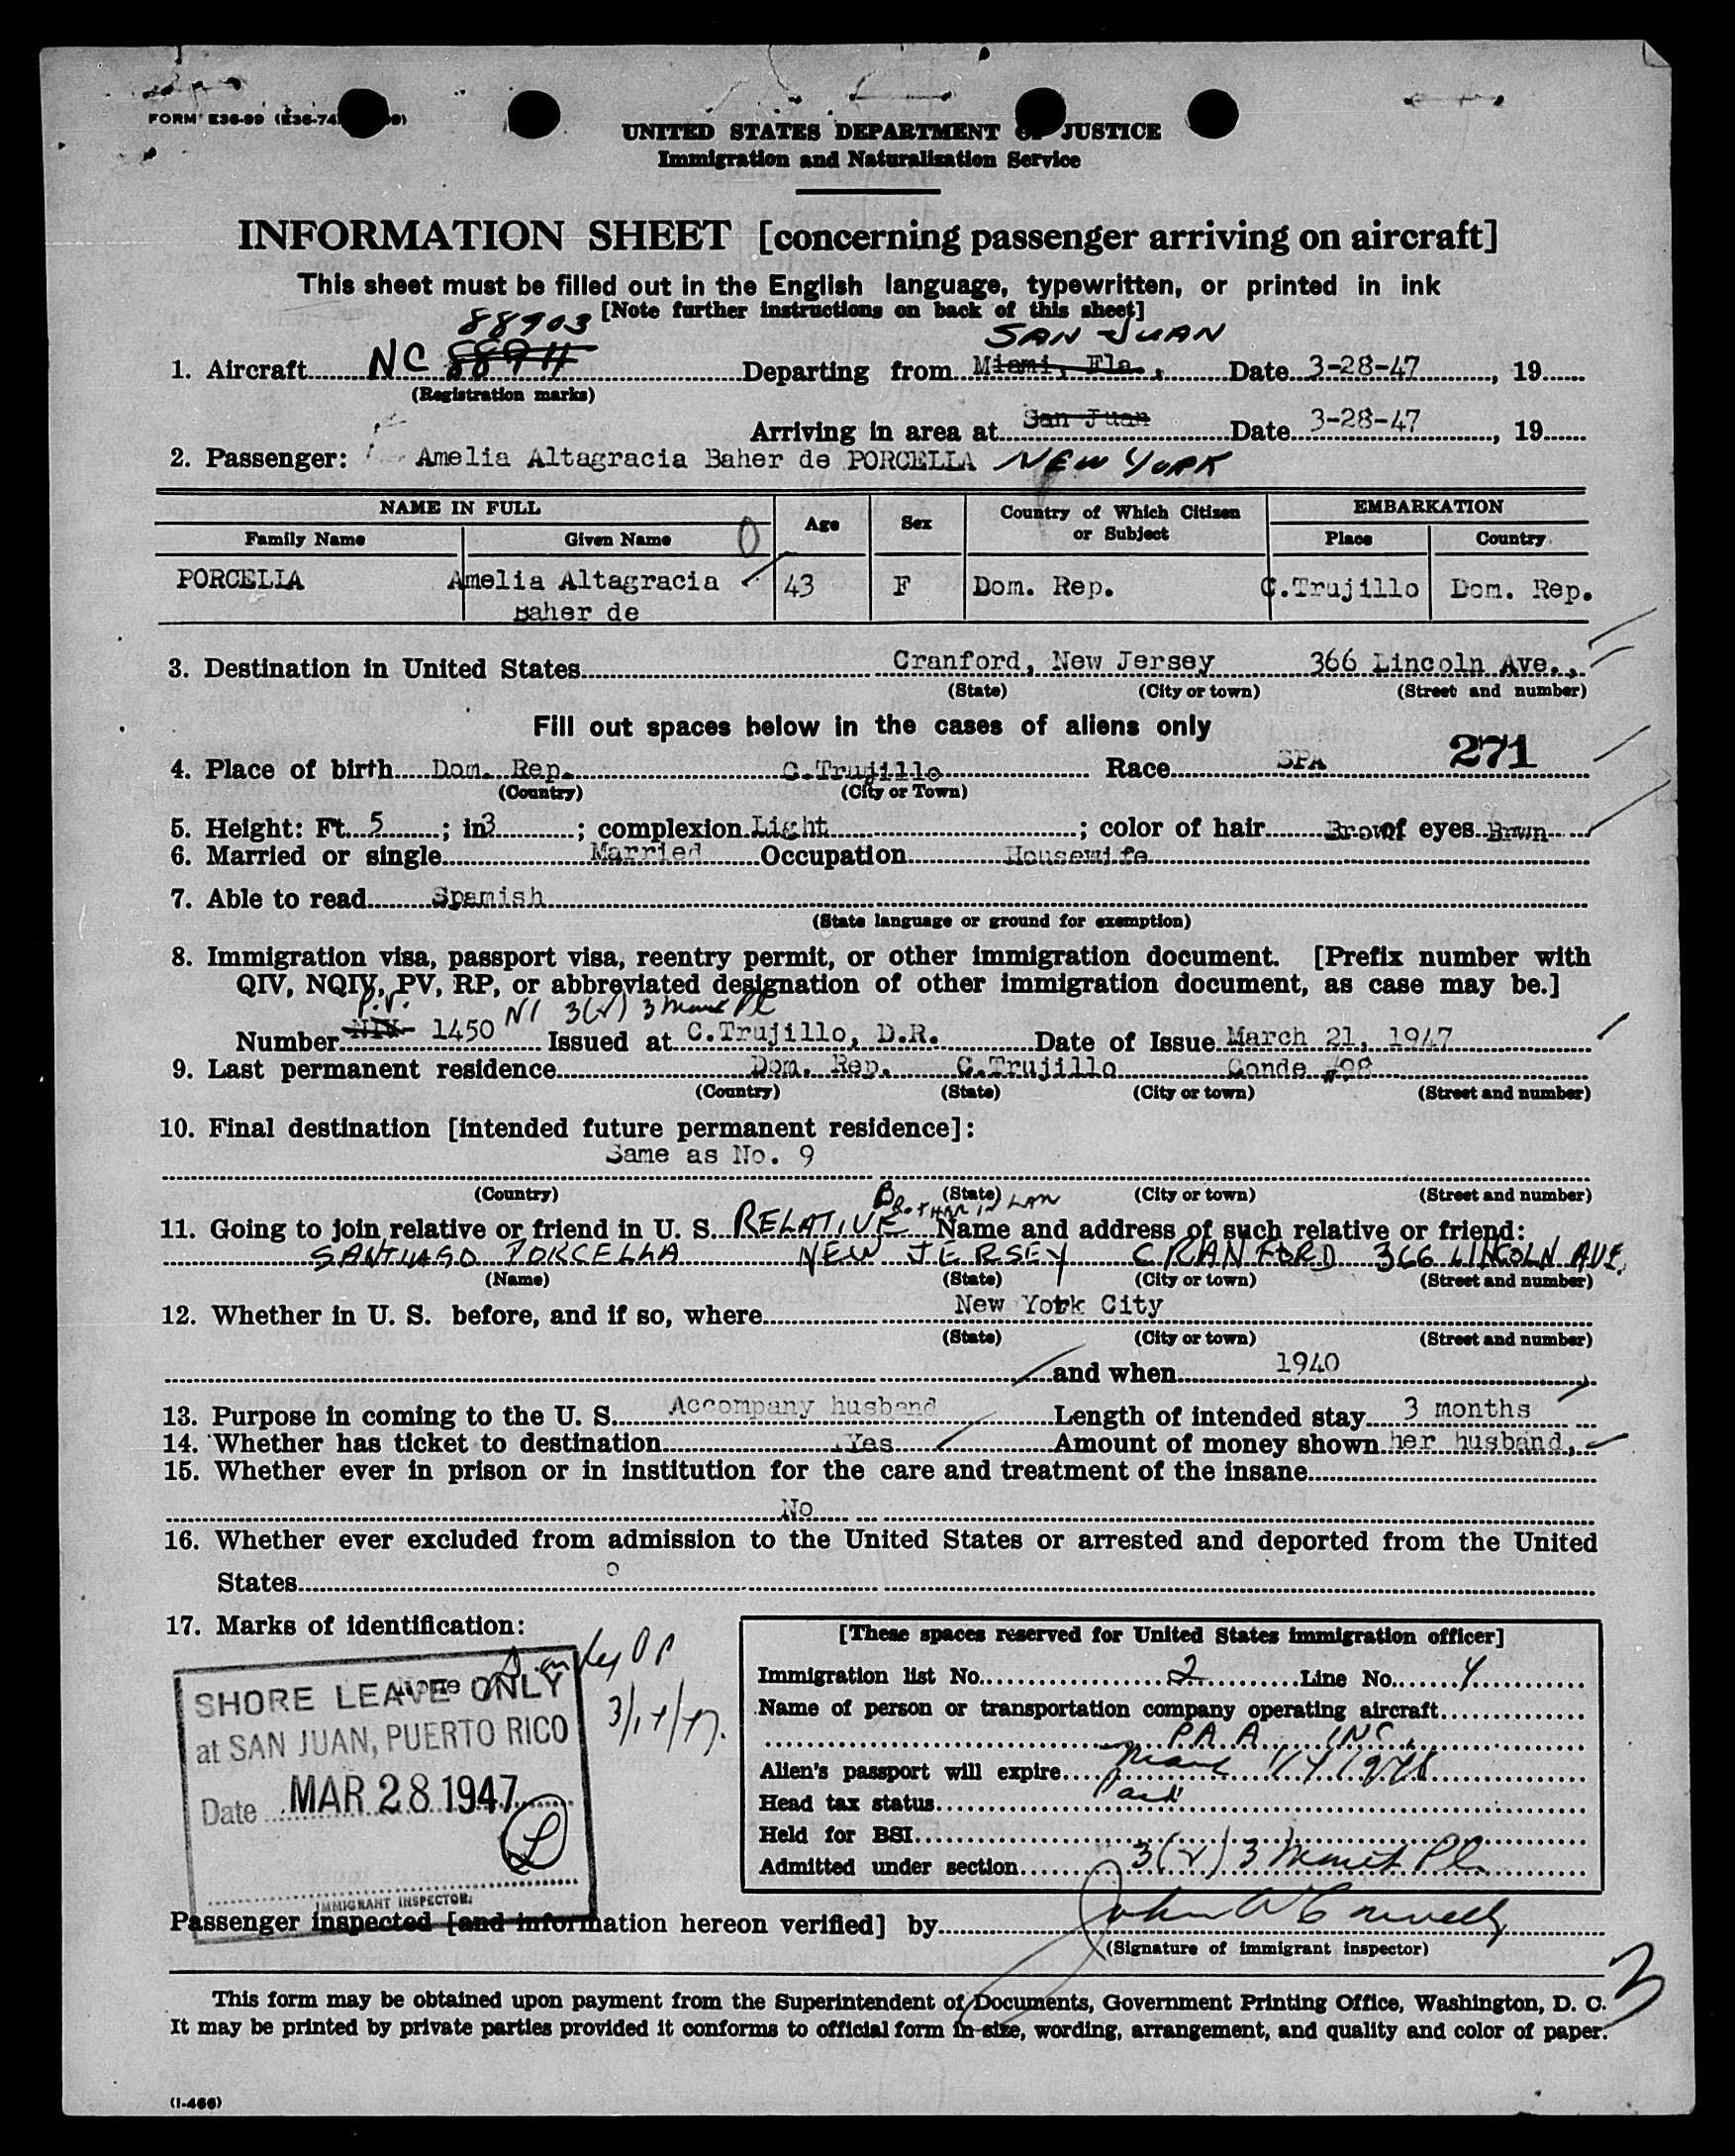 FORM E36-99 (E36-74
UNITED STATES DEPARTMENT OF JUSTICE
Immigration and Naturalization Service
INFORMATION SHEET [concerning passenger arriving on aircraft]
This sheet must be filled out in the English language, typewritten, or printed in ink
[Note further instructions on back of this sheet]
88903 SAN JUAN
1. Aircraft NC Departing from Miami, Fla., Date 3-28-47, 19
(Registration marks)
Arriving in area at San Juan Date 3-28-47, 19
2. Passenger: Amelia Altagracia Baher de PORCELLA NEW YORK
NAME IN FULL Age Sex Country of Which Citizen or Subject EMBARKATION
Family Name Given Name Place Country
PORCELLA Amelia Altagracia 43 F Dom. Rep. C.Trujillo Dom. Rep.
Baher de
3. Destination in United States Cranford, New Jersey 366 Lincoln Ave.,
(State) (City or town) (Street and number)
Fill out spaces below in the cases of aliens only
271
4. Place of birth Dom. Rep. C.Trujillo Race SPA
(Country) (City or Town)
5. Height: Ft. 5; in 3; complexion Light; color of hair Brown of eyes Brwn
6. Married or single Married Occupation Housewife
7. Able to read Spanish
(State language or ground for exemption)
8. Immigration visa, passport visa, reentry permit, or other immigration document. [Prefix number with
QIV, NQIV, PV, RP, or abbreviated designation of other immigration document, as case may be.]
P.V. 3(2) 3
Number NIV- 1450 Issued at C.Trujillo, D.R. Date of Issue March 21, 1947
9. Last permanent residence Dom. Rep. C.Trujillo Conde #98
(Country) (State) (City or town) (Street and number)
10. Final destination [intended future permanent residence]:
Same as No. 9
(Country) (State) (City or town) (Street and number)
BROTHAR IN LAW
11. Going to join relative or friend in U. S. RELATIVE Name and address of such relative or friend:
SANTIAGO PORCELLA NEW JERSEY CRANFORD 366 LINCOLN AVE.
(Name) (State) (City or town) (Street and number)
12. Whether in U. S. before, and if so, where New York City
(State) (City or town) (Street and number)
and when 1940
13. Purpose in coming to the U. S. Accompany husband Length of intended stay 3 months
14. Whether has ticket to destination Yes Amount of money shown her husband,
15. Whether ever in prison or in institution for the care and treatment of the insane
No
16. Whether ever excluded from admission to the United States or arrested and deported from the United
States o
17. Marks of identification:
None
SHORE LEAVE ONLY
at SAN JUAN, PUERTO RICO
Date MAR 28 1947
IMMIGRANT INSPECTOR.
[These spaces reserved for United States immigration officer]
Immigration list No. 2 Line No. 4
Name of person or transportation company operating aircraft
P.A.A. INC.
Alien's passport will expire
Head tax status Paid
Held for BSI
Admitted under section 3(2) 3
Passenger inspected [and information hereon verified] by
(Signature of immigrant inspector)
3
This form may be obtained upon payment from the Superintendent of Documents, Government Printing Office, Washington, D. C.
It may be printed by private parties provided it conforms to official form in size, wording, arrangement, and quality and color of paper.
(I-466)